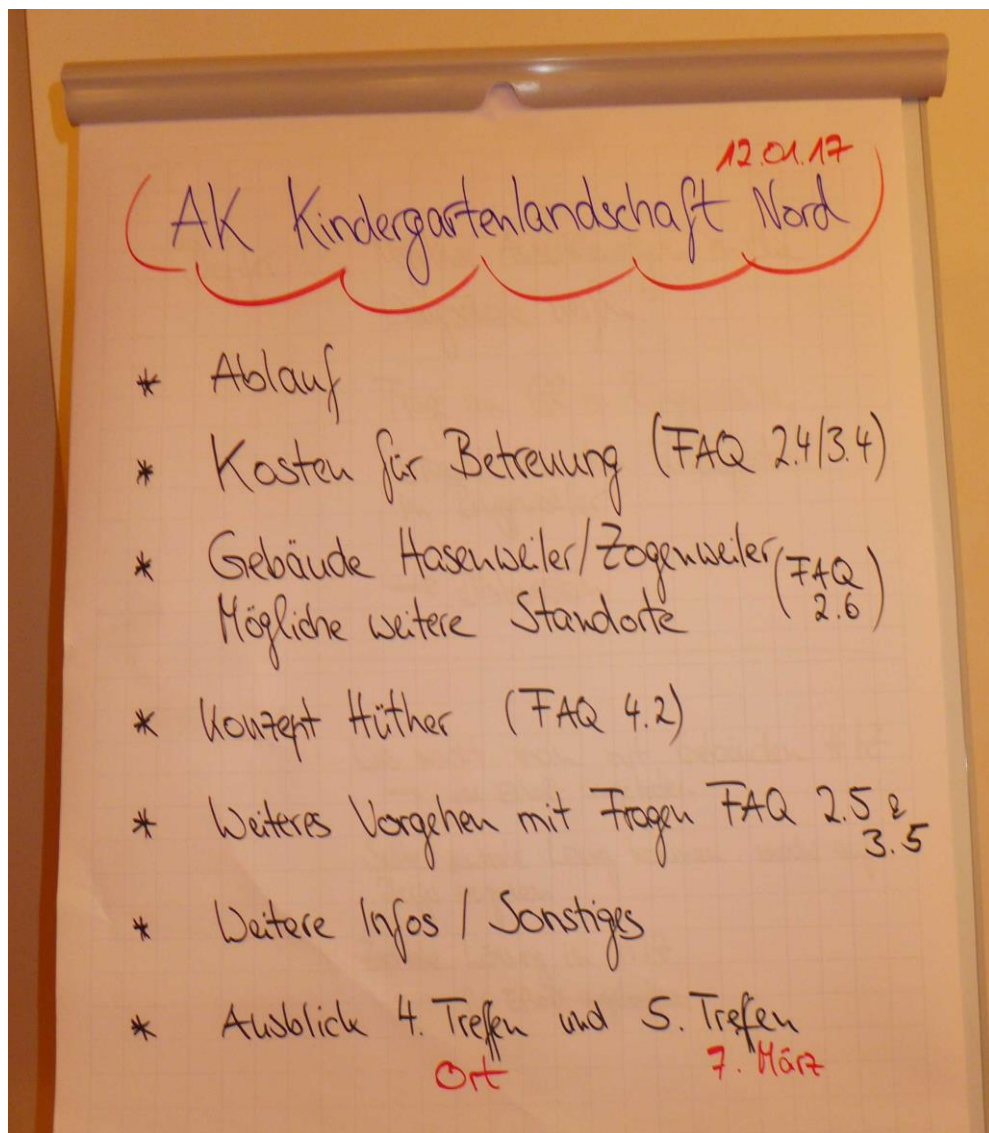 12.01.17
AK Kindergartenlandschaft Nord
* Ablauf
* Kosten für Betreuung (FAQ 2.4/3.4)
* Gebäude Hasenweiler/Zogenweiler (FAQ
Mögliche weitere Standorte 2.6)
* Konzept Hüther (FAQ 4.2)
* Weiteres Vorgehen mit Fragen FAQ 2.5 &
3.5
* Weitere Infos / Sonstiges
* Ausblick 4. Treffen und 5. Treffen
Ort 7. März